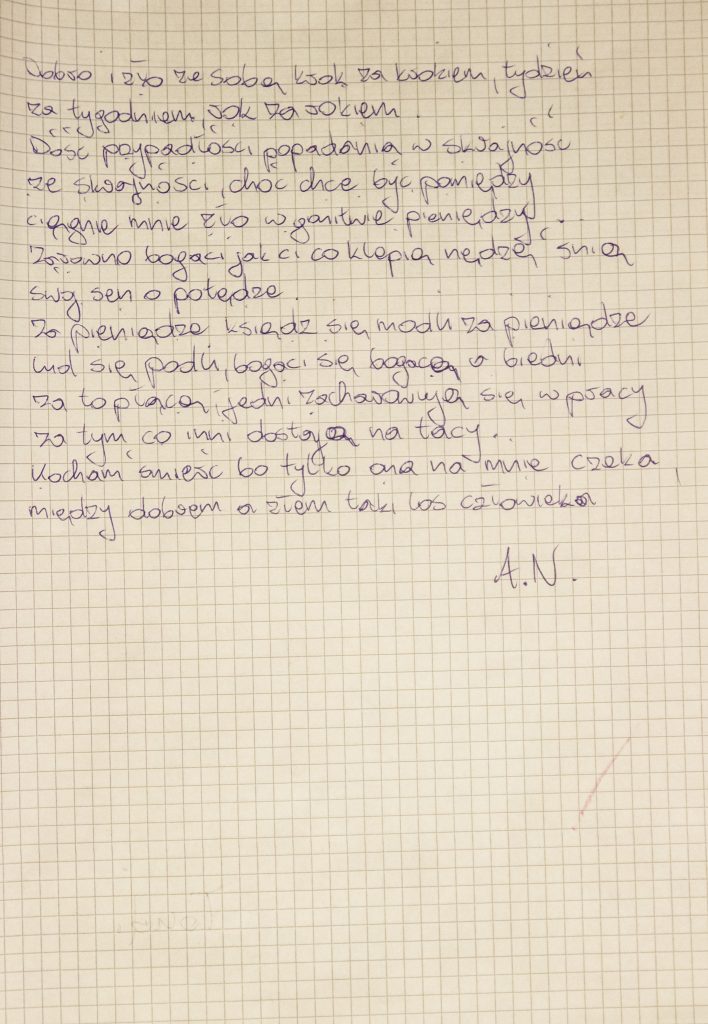 Dobro i zło ze sobą krok za krokiem, tydzień
za tygodniem, rok za rokiem.
Dość przypadłości popadania w skrajność
ze skrajności, choć chce być pomiędzy
ciągnie mnie zło w gonitwie pieniędzy..
Zarówno bogaci jak ci co klepią nędzę śnią
swój sen o potędze.
Za pieniądze ksiądz się modli za pieniądze
lud się podli, bogaci się bogacą a biedni
za to płacą, jedni zacharowują się w pracy
za tym co inni dostają na tacy..
Kocham śmierć bo tylko ona na mnie czeka,
między dobrem a złem taki los człowieka
A.N.